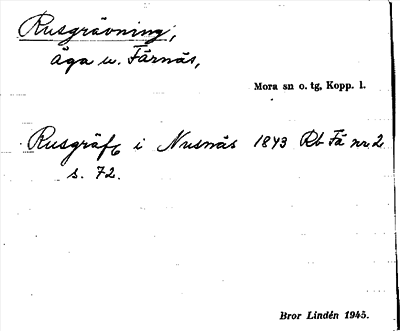 Rusgrävning,
äga u. Färnäs,
Mora sn o. tg, Kopp. l.
Rusgräf i Nusnäs 1843 Rb Fä nr. 2
s. 72.
Bror Lindén 1945.